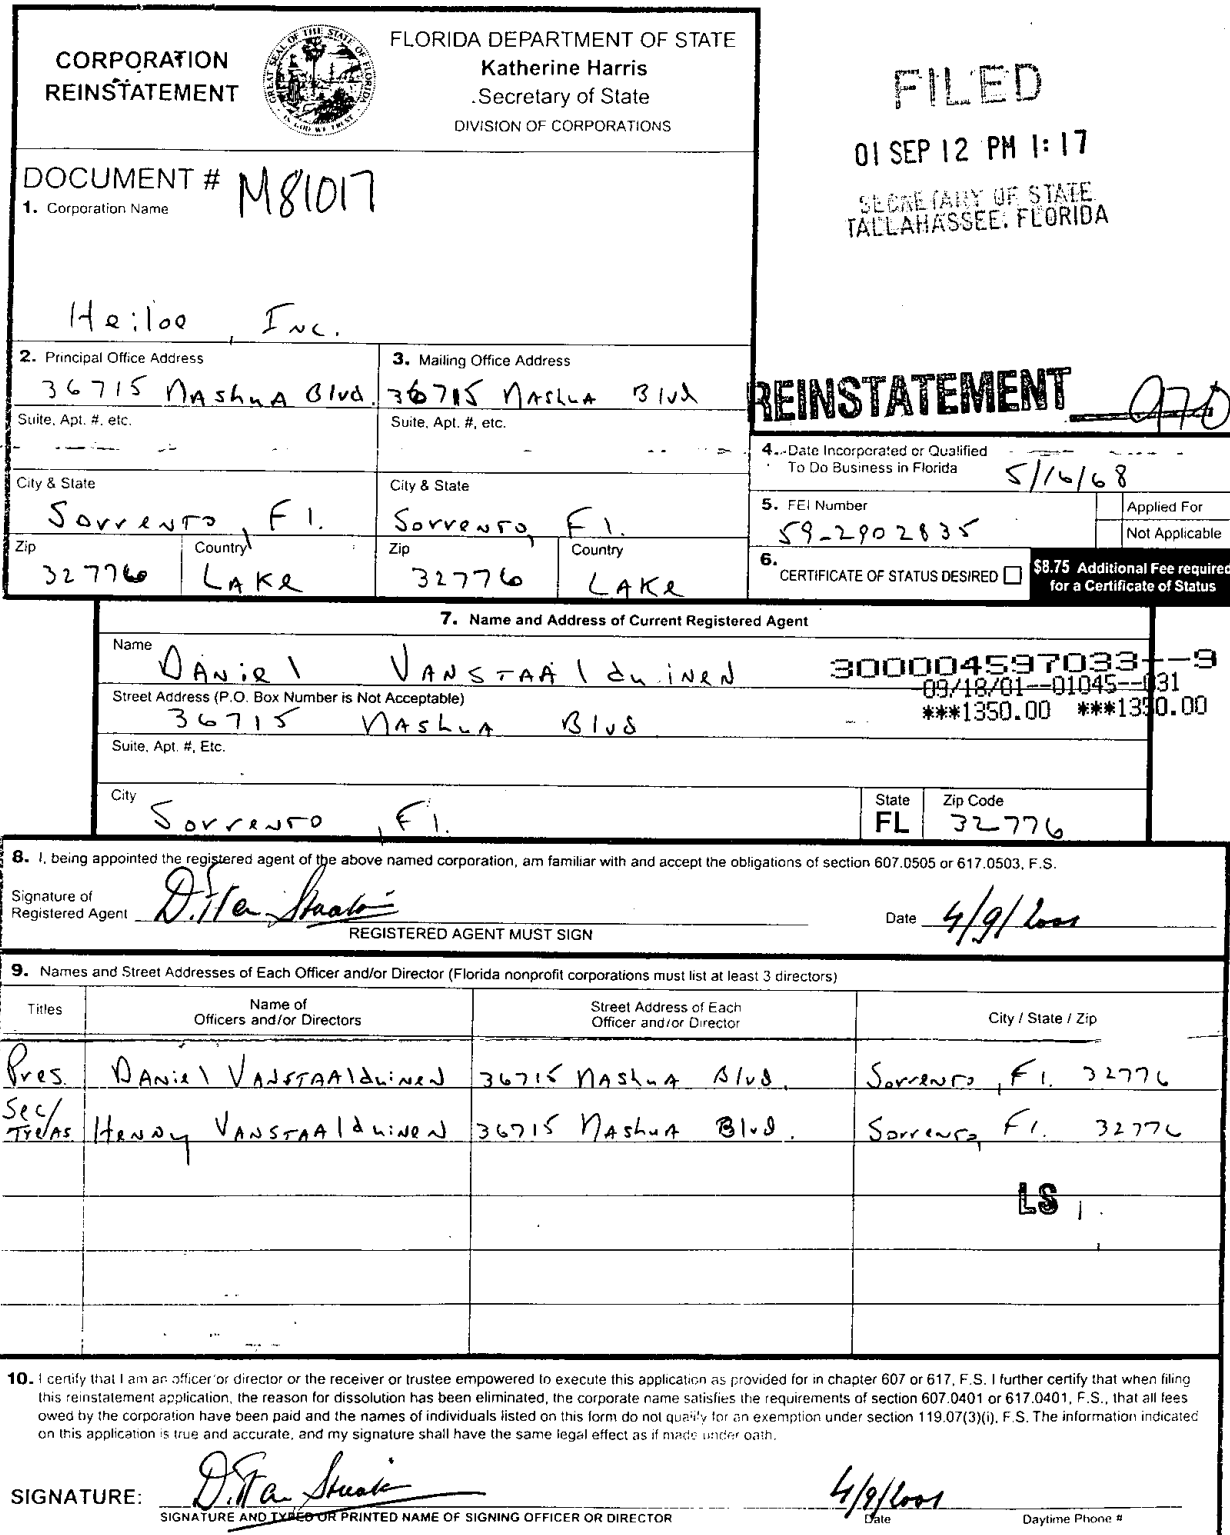 CORPORATION
REINSTATEMENT
FLORIDA DEPARTMENT OF STATE
Katherine Harris
Secretary of State
DIVISION OF CORPORATIONS
FILED
01 SEP 12 PM 1:17
SECRETARY OF STATE
TALLAHASSEE, FLORIDA
DOCUMENT # M81017
1. Corporation Name
Heiloe, Inc.
2. Principal Office Address
36715 Nashua Blvd.
3. Mailing Office Address
36715 Nashua Blvd
REINSTATEMENT
Suite, Apt. #, etc.
Suite, Apt. #, etc.
4. Date Incorporated or Qualified
To Do Business in Florida 5/16/68
City & State
Sorrento, Fl.
City & State
Sorrento, Fl.
5. FEI Number
59-2902835
Applied For
Not Applicable
Zip
32776
Country
LAKE
Zip
32776
Country
LAKE
6. CERTIFICATE OF STATUS DESIRED
$8.75 Additional Fee required
for a Certificate of Status
7. Name and Address of Current Registered Agent
Name
Daniel Vanstaalduinen
300004597033--9
-09/18/01--01045--031
***1350.00 ***1350.00
Street Address (P.O. Box Number is Not Acceptable)
36715 Nashua Blvd
Suite, Apt. #, Etc.
City
Sorrento, Fl.
State
FL
Zip Code
32776
8. I, being appointed the registered agent of the above named corporation, am familiar with and accept the obligations of section 607.0505 or 617.0503, F.S.
Signature of
Registered Agent
Date 4/9/2001
REGISTERED AGENT MUST SIGN
9. Names and Street Addresses of Each Officer and/or Director (Florida nonprofit corporations must list at least 3 directors)
Titles
Name of
Officers and/or Directors
Street Address of Each
Officer and/or Director
City / State / Zip
Pres. Daniel Vanstaalduinen 36715 Nashua Blvd. Sorrento, Fl. 32776
Sec/
Treas. Henny Vanstaalduinen 36715 Nashua Blvd. Sorrento, Fl. 32776
LS
10. I certify that I am an officer or director or the receiver or trustee empowered to execute this application as provided for in chapter 607 or 617, F.S. I further certify that when filing
this reinstatement application, the reason for dissolution has been eliminated, the corporate name satisfies the requirements of section 607.0401 or 617.0401, F.S., that all fees
owed by the corporation have been paid and the names of individuals listed on this form do not qualify for an exemption under section 119.07(3)(i), F.S. The information indicated
on this application is true and accurate, and my signature shall have the same legal effect as if made under oath.
SIGNATURE: 4/9/2001
SIGNATURE AND TYPED OR PRINTED NAME OF SIGNING OFFICER OR DIRECTOR
Date
Daytime Phone #